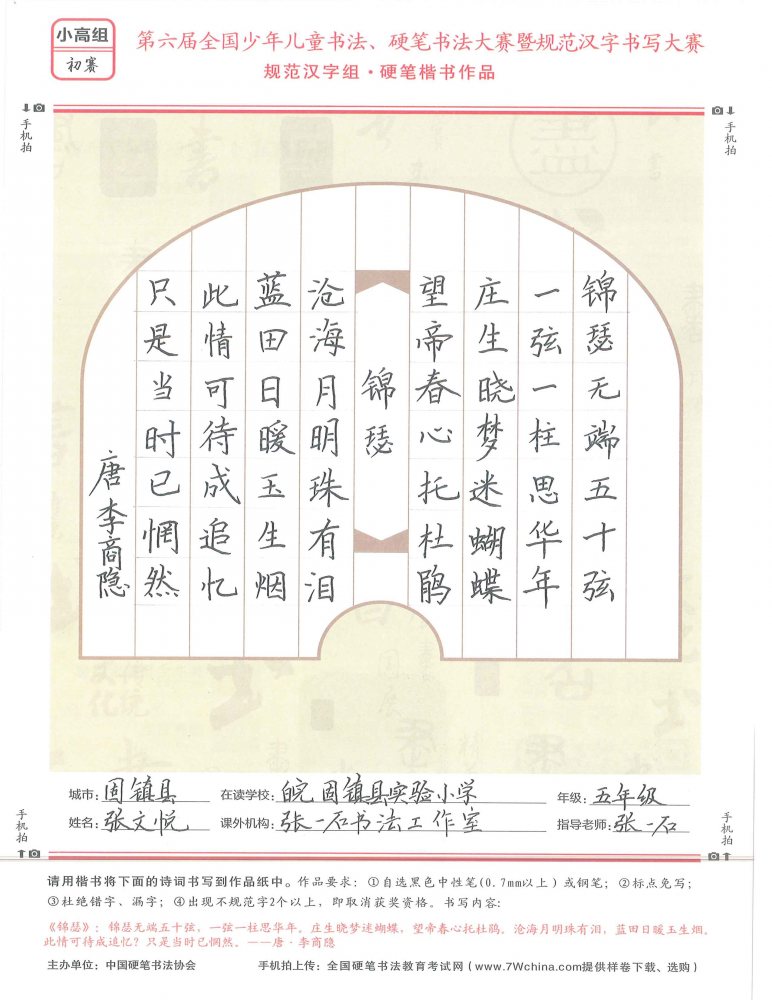 小高组
初赛
第六届全国少年儿童书法、硬笔书法大赛暨规范汉字书写大赛
规范汉字组·硬笔楷书作品
手机拍
手机拍
锦瑟无端五十弦
一弦一柱思华年
庄生晓梦迷蝴蝶
望帝春心托杜鹃
锦瑟
沧海月明珠有泪
蓝田日暖玉生烟
此情可待成追忆
只是当时已惘然
唐李商隐
城市：固镇县 在读学校：皖固镇县实验小学 年级：五年级
姓名：张文悦 课外机构：张一石书法工作室 指导老师：张一石
手机拍
手机拍
请用楷书将下面的诗词书写到作品纸中。作品要求：①自选黑色中性笔(0.7mm以上)或钢笔；②标点免写；
③杜绝错字、漏字；④出现不规范字2个以上，即取消获奖资格。书写内容：
《锦瑟》：锦瑟无端五十弦，一弦一柱思华年。庄生晓梦迷蝴蝶，望帝春心托杜鹃。沧海月明珠有泪，蓝田日暖玉生烟。
此情可待成追忆？只是当时已惘然。——唐·李商隐
主办单位：中国硬笔书法协会 手机拍上传：全国硬笔书法教育考试网（www.7Wchina.com提供样卷下载、选购）